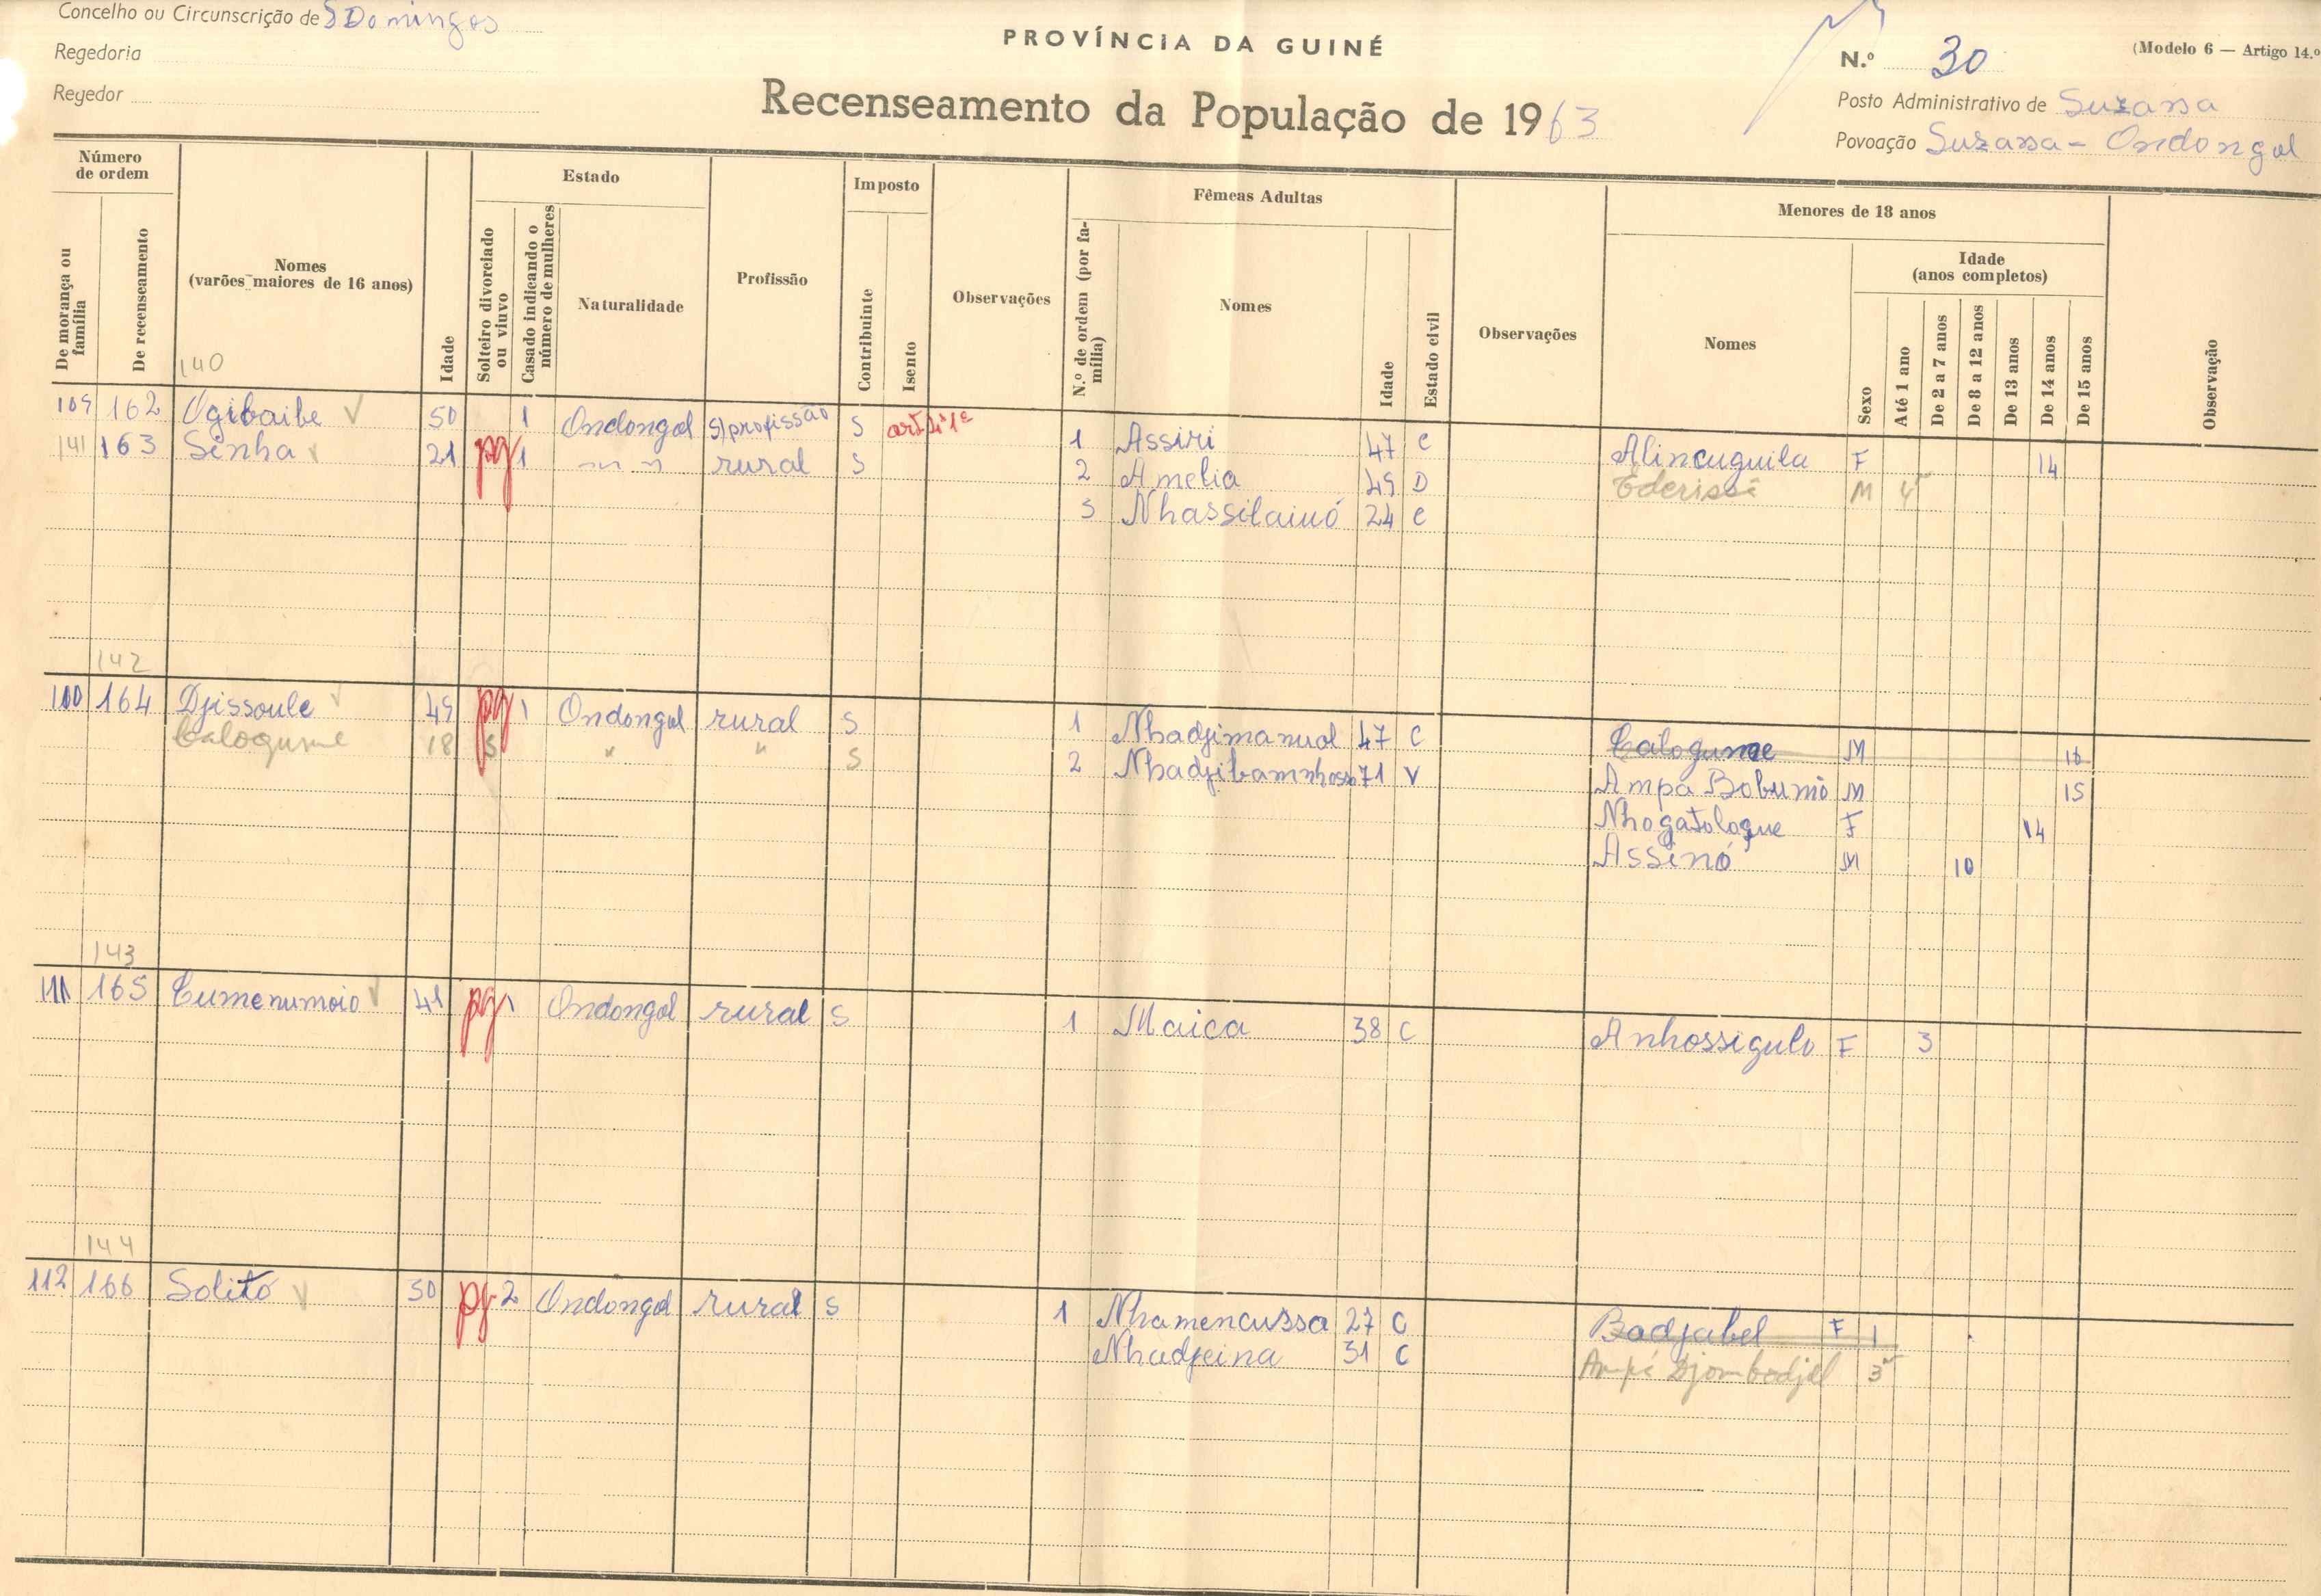 Concelho ou Circunscrição de S Domingos
Regedoria
Regedor
PROVÍNCIA DA GUINÉ
Recenseamento da População de 1963
N.º 30
(Modelo 6 — Artigo 14.º
Posto Administrativo de Suzana
Povoação Suzana - Ondongol
Número de ordem
De morança ou família
De recenseamento
Nomes
(varões maiores de 16 anos)
140
Idade
Estado
Solteiro divorciado ou viuvo
Casado indicando o número de mulheres
Naturalidade
Profissão
Imposto
Contribuinte
Isento
Observações
Fêmeas Adultas
N.º de ordem (por família)
Nomes
Idade
Estado civil
Observações
Menores de 18 anos
Nomes
Sexo
Idade
(anos completos)
Até 1 ano
De 2 a 7 anos
De 8 a 12 anos
De 13 anos
De 14 anos
De 15 anos
Observação
109 162 Ogibaibe 50 1 Ondongol S/profissão S
141 163 Senha 21 pg 1 " " " rural S
1 Assiri 47 C
2 Amelia 49 D
3 Nhassilaiuó 24 C
Alincuguila F 14
Ederissi M
142
110 164 Djissoule 49 pg 1 Ondongol rural S
Calogume 18 S " " S
1 Nhadjimanual 47 C
2 71 V
Calogume M 16
Ampa Bobunió M 15
Nhogatologue F 14
Assinó M 10
143
111 165 Cumenumoio 41 pg 1 Ondongol rural S
1 Maica 38 C
Anhossigulo F 3
144
112 166 Solitó 30 pg 2 Ondongol rural S
1 Nhamencussa 27 C
Nhadjeina 31 C
Badjabel F 1
Ampá Djombodjel 3